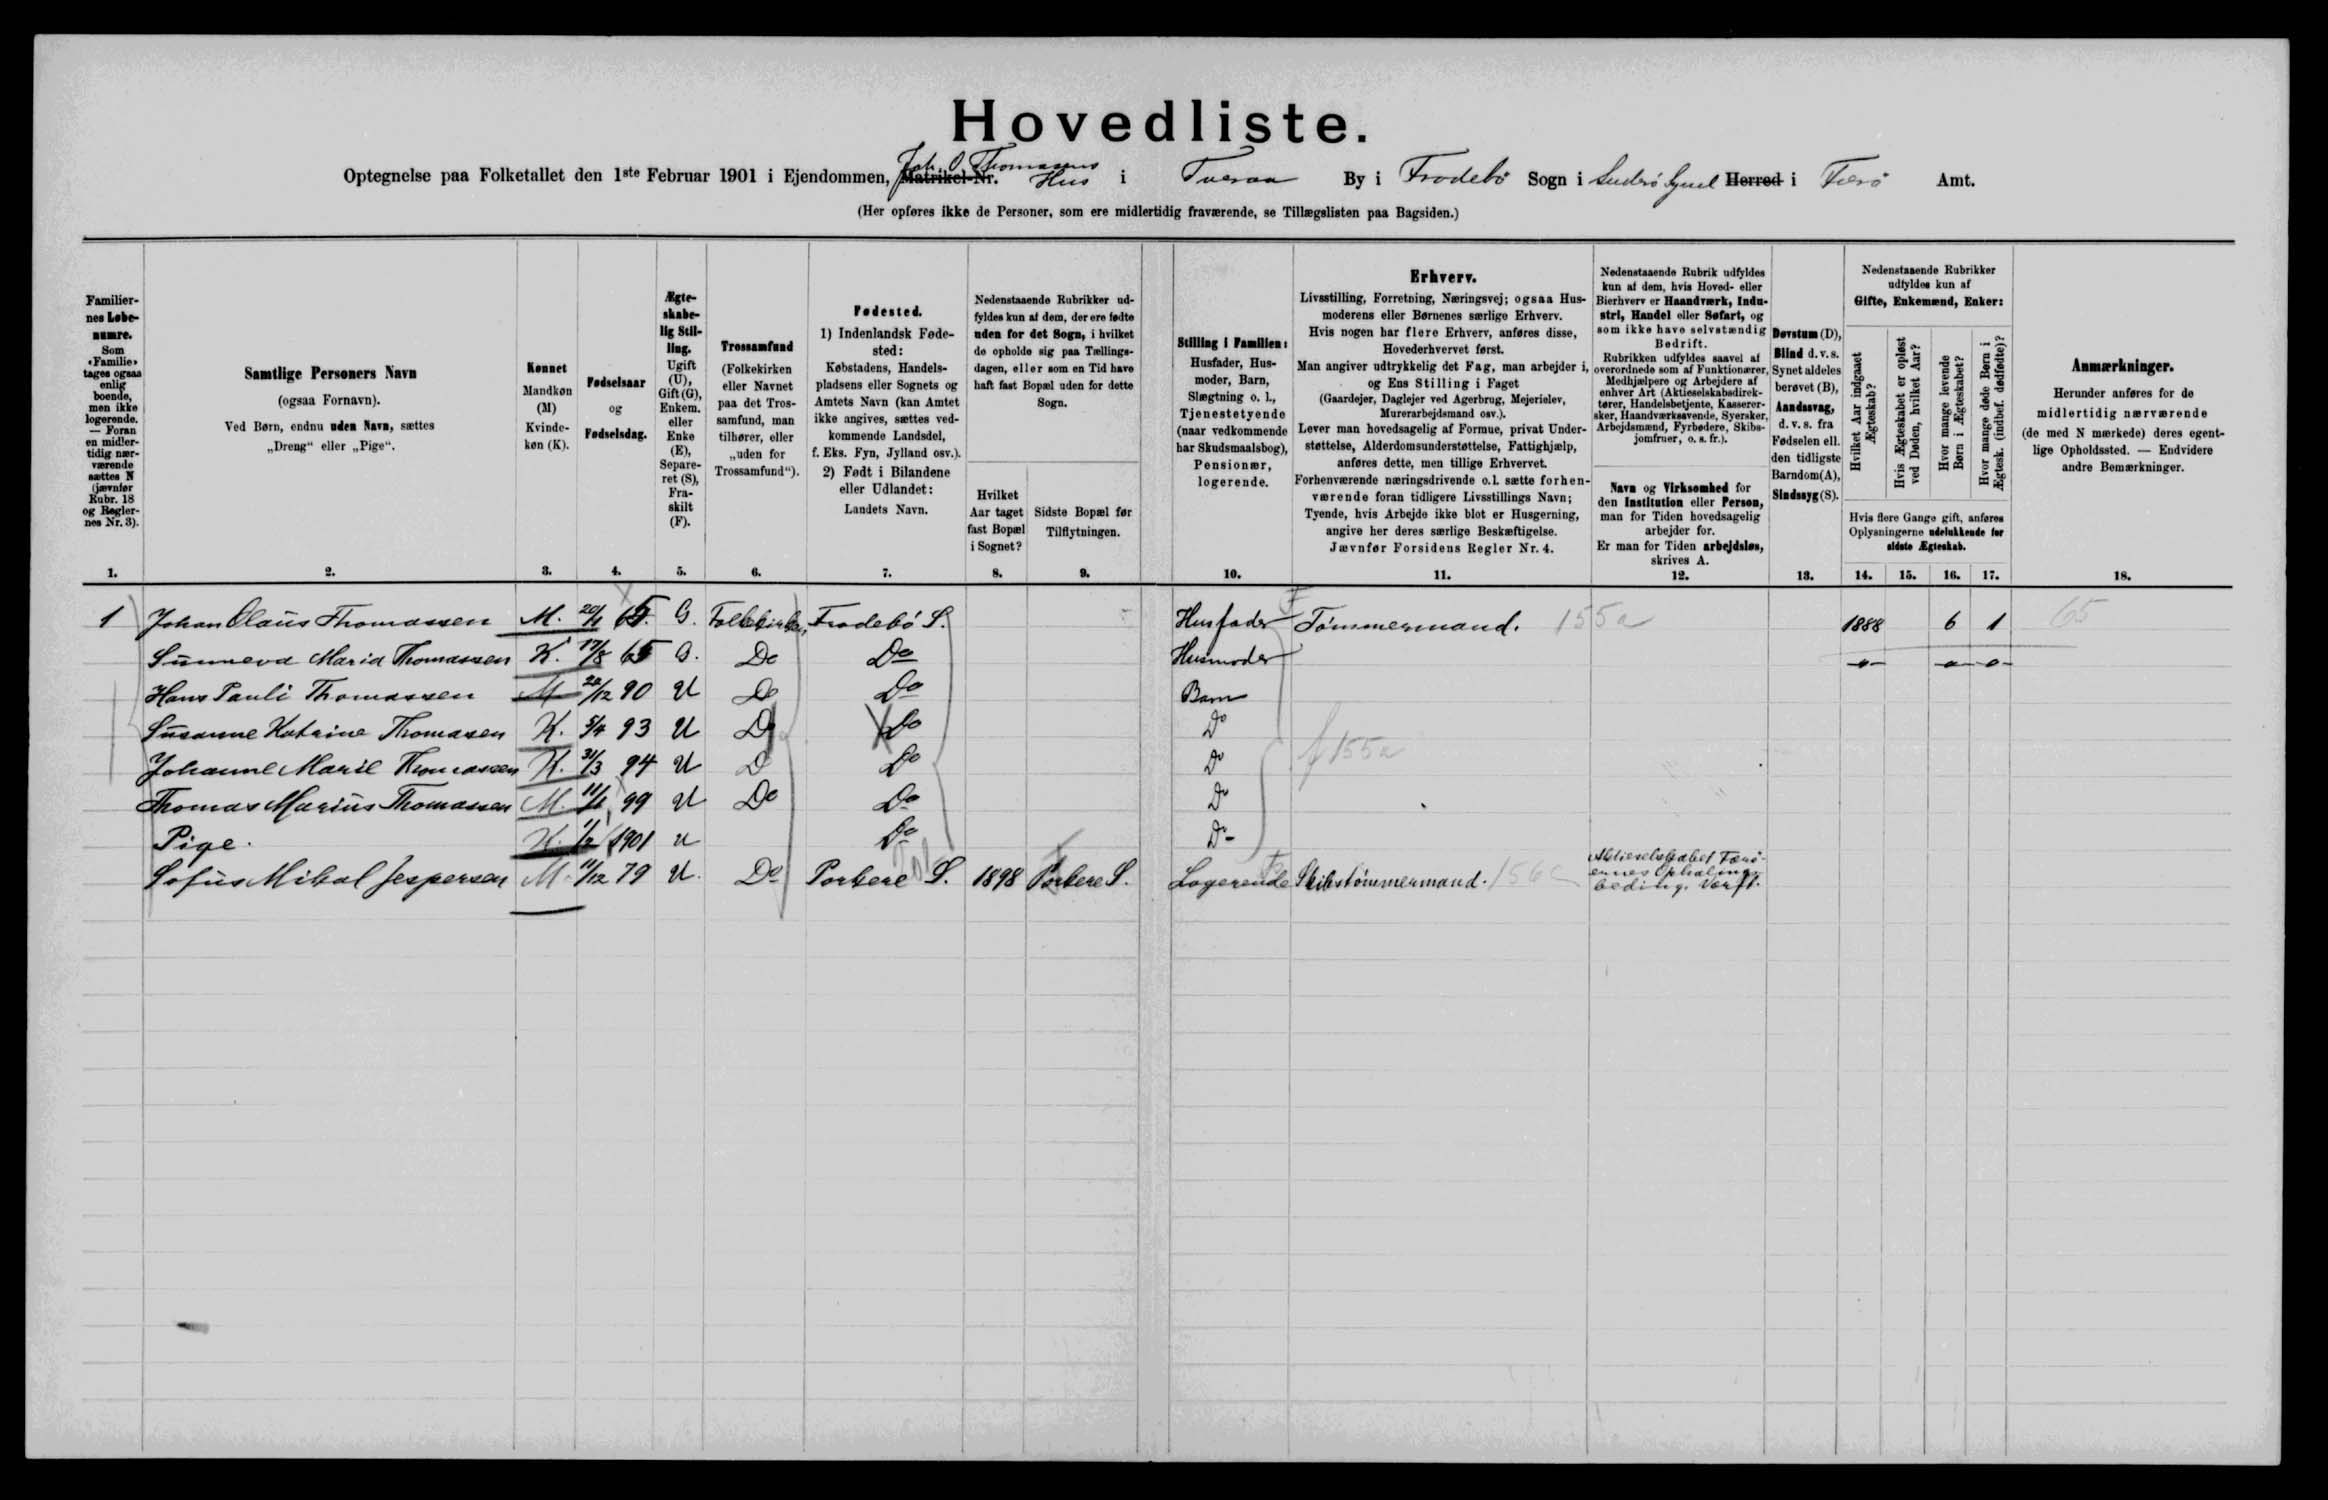 Hovedliste.
Optegnelse paa Folketallet den 1ste Februar 1901 i Ejendommen, Matrikel-Nr. Joh. O. Thomasens Hus i Tveraa By i Frodebö Sogn i Suderö Syssel Herred i Færö Amt.
(Her opføres ikke de Personer, som ere midlertidig fraværende, se Tillægslisten paa Bagsiden.)
Familiernes Løbenumre.
Som «Familie» tages ogsaa enlig boende, men ikke logerende. — Foran en midlertidig nærværende sættes N (jævnfør Rubr. 18 og Reglernes Nr. 3).
Samtlige Personers Navn
(ogsaa Fornavn).
Ved Børn, endnu uden Navn, sættes
„Dreng“ eller „Pige“.
Kønnet
Mandkøn (M)
Kvindekøn (K).
Fødselsaar
og
Fødselsdag.
Ægteskabelig Stilling.
Ugift (U), Gift (G), Enkem. eller Enke (E), Separeret (S), Fraskilt (F).
Trossamfund
(Folkekirken eller Navnet paa det Trossamfund, man tilhører, eller „uden for Trossamfund“).
Fødested.
1) Indenlandsk Fødested:
Købstadens, Handelspladsens eller Sognets og Amtets Navn (kan Amtet ikke angives, sættes vedkommende Landsdel, f. Eks. Fyn, Jylland osv.).
2) Født i Bilandene eller Udlandet:
Landets Navn.
Nedenstaaende Rubrikker udfyldes kun af dem, der ere fødte uden for det Sogn, i hvilket de opholde sig paa Tællingsdagen, eller som en Tid have haft fast Bopæl uden for dette Sogn.
Hvilket Aar taget fast Bopæl i Sognet?
Sidste Bopæl før Tilflytningen.
Stilling i Familien:
Husfader, Husmoder, Barn, Slægtning o. l., Tjenestetyende (naar vedkommende har Skudsmaalsbog), Pensionær, logerende.
Erhverv.
Livsstilling, Forretning, Næringsvej; ogsaa Husmoderens eller Børnenes særlige Erhverv.
Hvis nogen har flere Erhverv, anføres disse, Hovederhvervet først.
Man angiver udtrykkelig det Fag, man arbejder i, og Ens Stilling i Faget
(Gaardejer, Daglejer ved Agerbrug, Mejerielev, Murerarbejdsmand osv.).
Lever man hovedsagelig af Formue, privat Understøttelse, Alderdomsunderstøttelse, Fattighjælp, anføres dette, men tillige Erhvervet.
Forhenværende næringsdrivende o. l. sætte forhenværende foran tidligere Livsstillings Navn;
Tyende, hvis Arbejde ikke blot er Husgerning, angive her deres særlige Beskæftigelse.
Jævnfør Forsidens Regler Nr. 4.
Nedenstaaende Rubrik udfyldes kun af dem, hvis Hoved- eller Bierhverv er Haandværk, Industri, Handel eller Søfart, og som ikke have selvstændig Bedrift.
Rubrikken udfyldes saavel af overordnede som af Funktionærer, Medhjælpere og Arbejdere af enhver Art (Aktieselskabsdirektører, Handelsbetjente, Kasserersker, Haandværkssvende, Syersker, Arbejdsmænd, Fyrbødere, Skibsjomfruer, o. s. fr.).
Navn og Virksomhed for den Institution eller Person, man for Tiden hovedsagelig arbejder for.
Er man for Tiden arbejdsløs, skrives A.
Døvstum (D), Blind d. v. s. Synet aldeles berøvet (B), Aandssvag, d. v. s. fra Fødselen ell. den tidligste Barndom (A), Sindssyg (S).
Nedenstaaende Rubrikker udfyldes kun af Gifte, Enkemænd, Enker:
Hvilket Aar indgaaet Ægteskab?
Hvis Ægteskabet er opløst ved Døden, hvilket Aar?
Hvor mange levende Børn i Ægteskabet?
Hvor mange døde Børn i Ægtesk. (indbef. dødfødte)?
Hvis flere Gange gift, anføres Oplysningerne udelukkende for sidste Ægteskab.
Anmærkninger.
Herunder anføres for de midlertidig nærværende (de med N mærkede) deres egentlige Opholdssted. — Endvidere andre Bemærkninger.
1. 2. 3. 4. 5. 6. 7. 8. 9. 10. 11. 12. 13. 14. 15. 16. 17. 18.
1 Johan Olaus Thomassen M. 20/1 65. G. Folkekirken Frodebö S. Husfader Tömmermand. 155a 1888 6 1 65
Sunneva Maria Thomassen K. 17/8 65 G. Do Do Husmoder
Hans Pauli Thomassen M 22/12 90 U Do Do Barn
Susanne Katrine Thomasen K. 5/4 93 U Do Do Do
Johanne Marie Thomassen K. 31/3 94 U D Do Do f 155a
Thomas Marius Thomassen M. 11/1 99 U Do Do Do
Pige. K. 1/2 1901 u Do Do
Sofus Mikal Jespersen M. 11/12 79 U. Do Porkere S. 1898 Porkere S. Logerende Skibstömmermand. 156c Aktieselskabet Færöernes Ophalingsbeding. Værft.